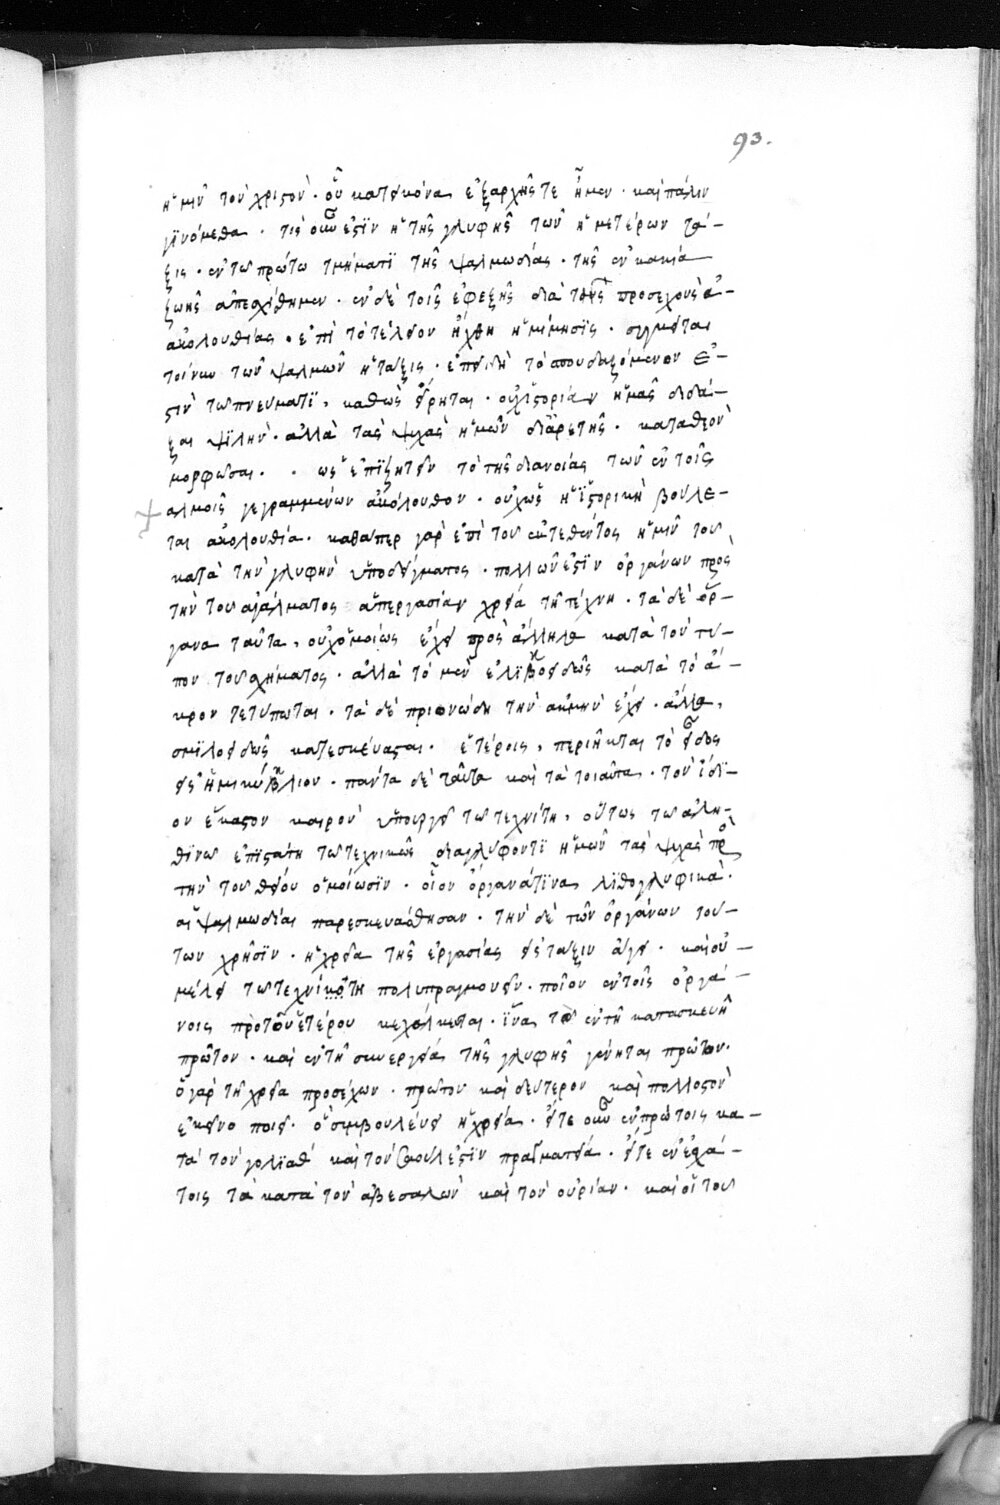 93.
ἡμῖν τὸν χριστὸν · οὗ κατεικόνα ἐξαρχῆς τε ἦμεν · καὶ πάλιν
γινόμεθα · τίς οὖν ἐστὶν ἡ τῆς γλυφῆς τῶν ἡμετέρων τά-
ξις · ἐν τῷ πρώτῳ τμήματι τῆς ψαλμωδίας · τῆς ἐν κακία
ζωῆς ἀπεσχίθημεν · ἐν δὲ τοῖς ἐφεξῆς διὰ τῆς προσεχοῦς ἀ-
κολουθίας · ἐπὶ τὸ τέλειον ἤχθη ἡ μίμησις ·
τοίνυν τῶν ψαλμῶν ἡ τάξις · ἐπειδὴ τὸ σπουδαζόμενον ἐ-
στὶν τῷ πνεύματι, καθὼς εἴρηται · οὐχ ἱστορίαν ἡμᾶς διδά-
ξαι ψιλὴν · ἀλλὰ τὰς ψυχὰς ἡμῶν διἀρετῆς · κατὰ θεὸν
μορφῶσαι · · ὡς ἐπιζητεῖν τὸ τῆς διανοίας τῶν ἐν τοῖς
ψαλμοῖς γεγραμμένων ἀκόλουθον · οὐχ ὡς ἡ ἱστορικὴ βούλε-
ται ἀκολουθία · καθάπερ γὰρ ἐπὶ τοῦ ἐκτεθέντος ἡμῖν τοῦ
κατὰ τὴν γλυφὴν ὑποδείγματος · πολλῶν ἐστὶν ὀργάνων πρὸς
τὴν τοῦ ἀγάλματος ἀπεργασίαν χρεία τῇ τέχνῃ · τὰ δὲ ὄρ-
γανα ταῦτα, οὐχ ὁμοίως ἔχει πρὸς ἄλληλα κατὰ τὸν τύ-
πον τοῦ σχήματος · ἀλλὰ τὸ μὲν ἑλικοειδῶς κατὰ τὸ ἄ-
κρον τετύπωται · τὰ δὲ πριονώδη τὴν ἀκμὴν ἔχει · ἄλλα,
σμιλοειδῶς κατεσκεύασται · ἑτέροις, περιῆκται τὸ εἶδος
εἰς ἡμικύκλιον · πάντα δὲ ταῦτα καὶ τὰ τοιαῦτα · τὸν ἴδι-
ον ἕκαστον καιρὸν ὑπουργεῖ τῷ τεχνίτῃ, οὕτως τῷ ἀλη-
θινῷ ἐπιστάτῃ τῷ τεχνικῶς διαγλύφοντι ἡμῶν τὰς ψυχὰς πρὸς
τὴν τοῦ θείου ὁμοίωσιν · οἷον ὄργανά τινα λιθογλυφικὰ ·
αἱ ψαλμωδίαι παρεσκευάσθησαν · τὴν δὲ τῶν ὀργάνων τού-
των χρῆσιν · ἡ χρεία τῆς ἐργασίας εἰς τάξιν ἄγει · καὶ οὐ
μέλει τῷ τεχνίτῃ πολυπραγμονεῖν · ποῖον ἐν τοῖς ὀργά-
νοις πρὸ τοῦ ἑτέρου κεχάλκευται · ἵνα τὸ ἐν τῇ κατασκευῇ
πρῶτον · καὶ ἐν τῇ συνεργεία τῆς γλυφῆς γένηται πρῶτον ·
ὃ γὰρ τῇ χρεία προσέχων · πρῶτον καὶ δεύτερον καὶ πολλοστὸν
ἐκεῖνο ποιεῖ · ὃ συμβουλεύει ἡ χρεία · εἴτε οὖν ἐν πρώτοις κα-
τὰ τὸν γολιαθ καὶ τὸν σαοὺλ ἐστὶν πραγματεία · εἴτε ἐν ἐσχά-
τοις τὰ κατὰ τὸν ἀβεσαλὼν καὶ τὸν οὐρίαν · καὶ οἱ τοῦ